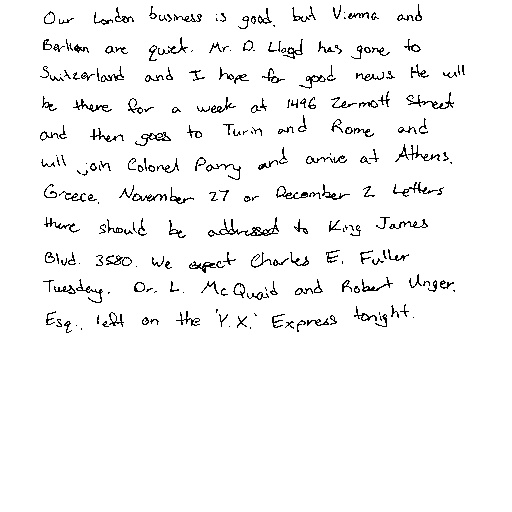 Our London business is good, but Vienna and
Berlian are quiet. Mr. D. Lloyd has gone to
Switzerland and I hope for good news. He will
be there for a week at 1496 Zermott Street
and then goes to Turin and Rome and
will join Colonel Parry and arrive at Athens,
Greece, November 27 or December 2. Letters
there should be addressed to King James
Blvd. 3580. We expect Charles E. Fuller
Tuesday. Dr. L. McQuaid and Robert Unger,
Esq., left on the 'Y.X.' Express tonight.